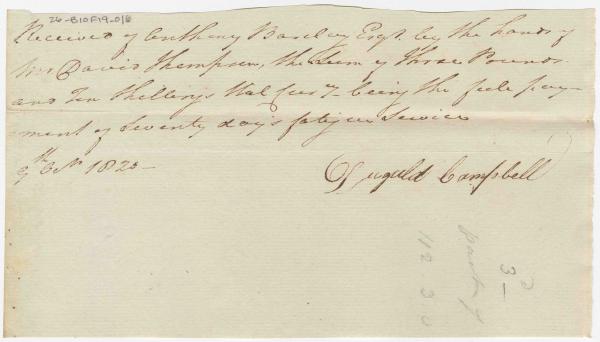 26-B10F19-018
Received of Anthony Barclay Esqr. by the hands of
Mr David Thompson, the Sum of Three Pounds
and Ten Shillings Hal Curcy being the full pay-
ment of Seventy days fatigue Service
Octr 1820 —
Dugald Campbell
3 —